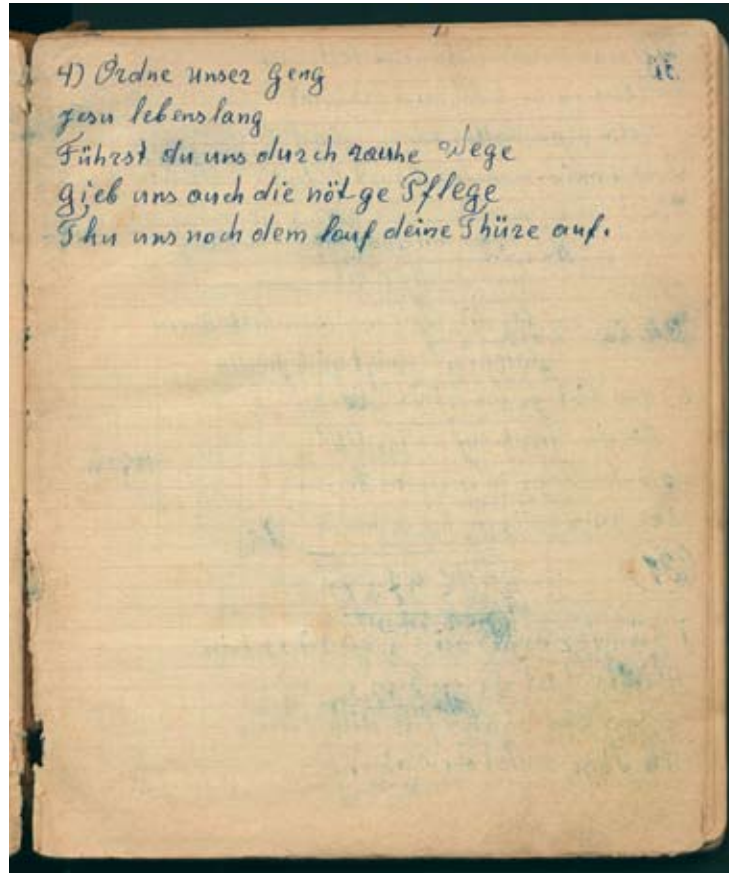 4) Ordne unser Geng
Jesu lebenslang
Führst du uns durch rauhe Wege
Gieb uns auch die nöt ge Pflege
Thu uns noch dem lauf deine Thüre auf.